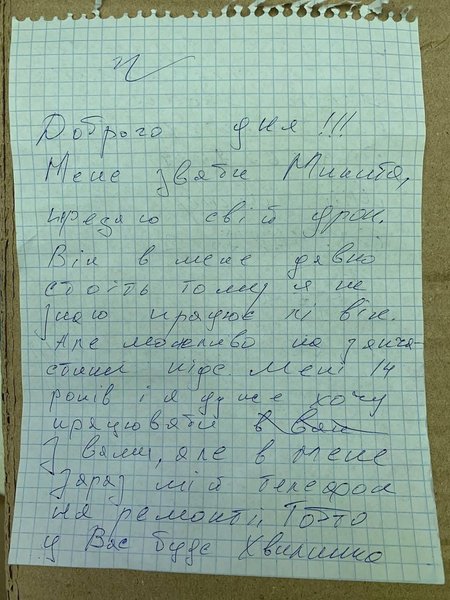 Доброго дня!!!
Мене звати Микита,
предаю свій дрон.
Він в мене давно
стоїть тому я не
знаю працює лі він.
Але можливо на запча-
стини піде. Мені 14
років і я дуже хочу
працювати в
З вами, але в мене
зараз мій телефон
на ремонті, Тобто
у Вас буде Хвилинка